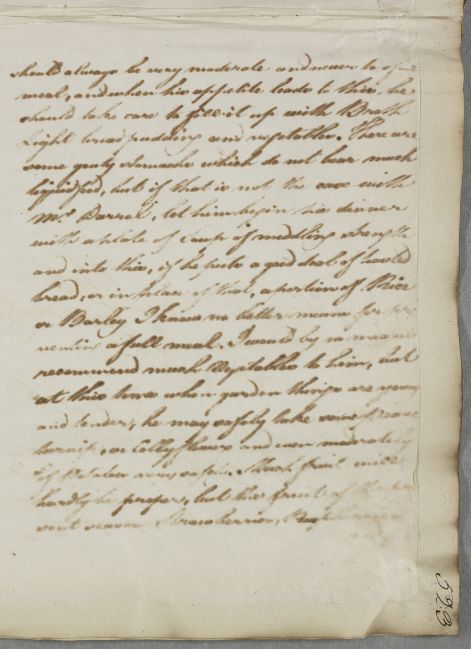 should always be very moderate and never to a full
meal, and when his appetite leads to this, he
should take care to fill it up with Broth
Light bread pudding and vegetables. There are
some gouty stomachs which do not bear much
liquid food, but if that is not the case with
Mr. Darrel, let him begin his dinner
with a plate of Soup of middling strength
and into this, if he puts a good deal of
bread, or in place of that, a portion of Rice
or Barley I know no better means for pre
venting a full meal. I would by no means
recommend much Vegetables to him, but
at this time when garden things are young
and tender, he may safely take some Pease
turnip, or Collyflower and even moderately
of Potatoes. Much fruit will
hardly be proper, but the fruits of the pre
sent season Strawberries,
523